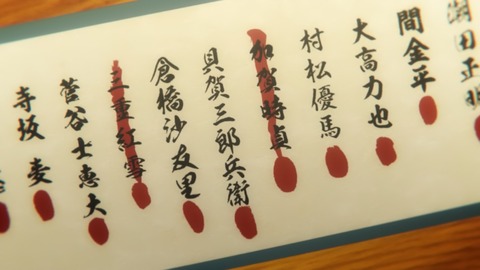 間金平
大高力也
村松優馬
加賀時貞
貝賀三郎兵衛
倉橋沙友里
三重紅雪
菅谷士恵大
寺坂麦